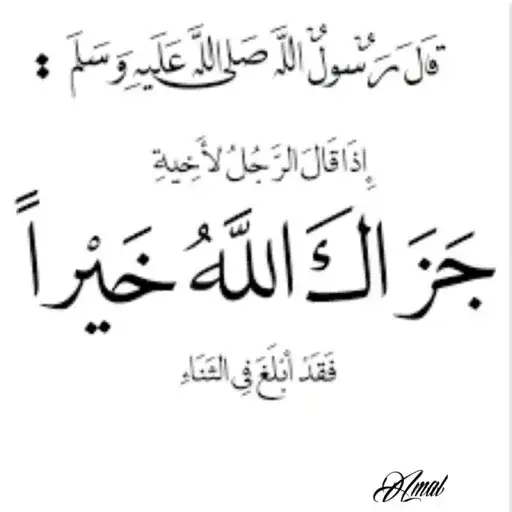 قَالَ رَسُولُ اللَّه صَلَى اللَّه عَلَيهِ وَسَلَمَ :
إِذَا قَالَ الرَّجُلُ لأَخِيةِ
جَزَ اكَ اللَّهُ خَيْراً
فَقَدْ أَبْلَغَ فِي الثَنَاءِ
Amal